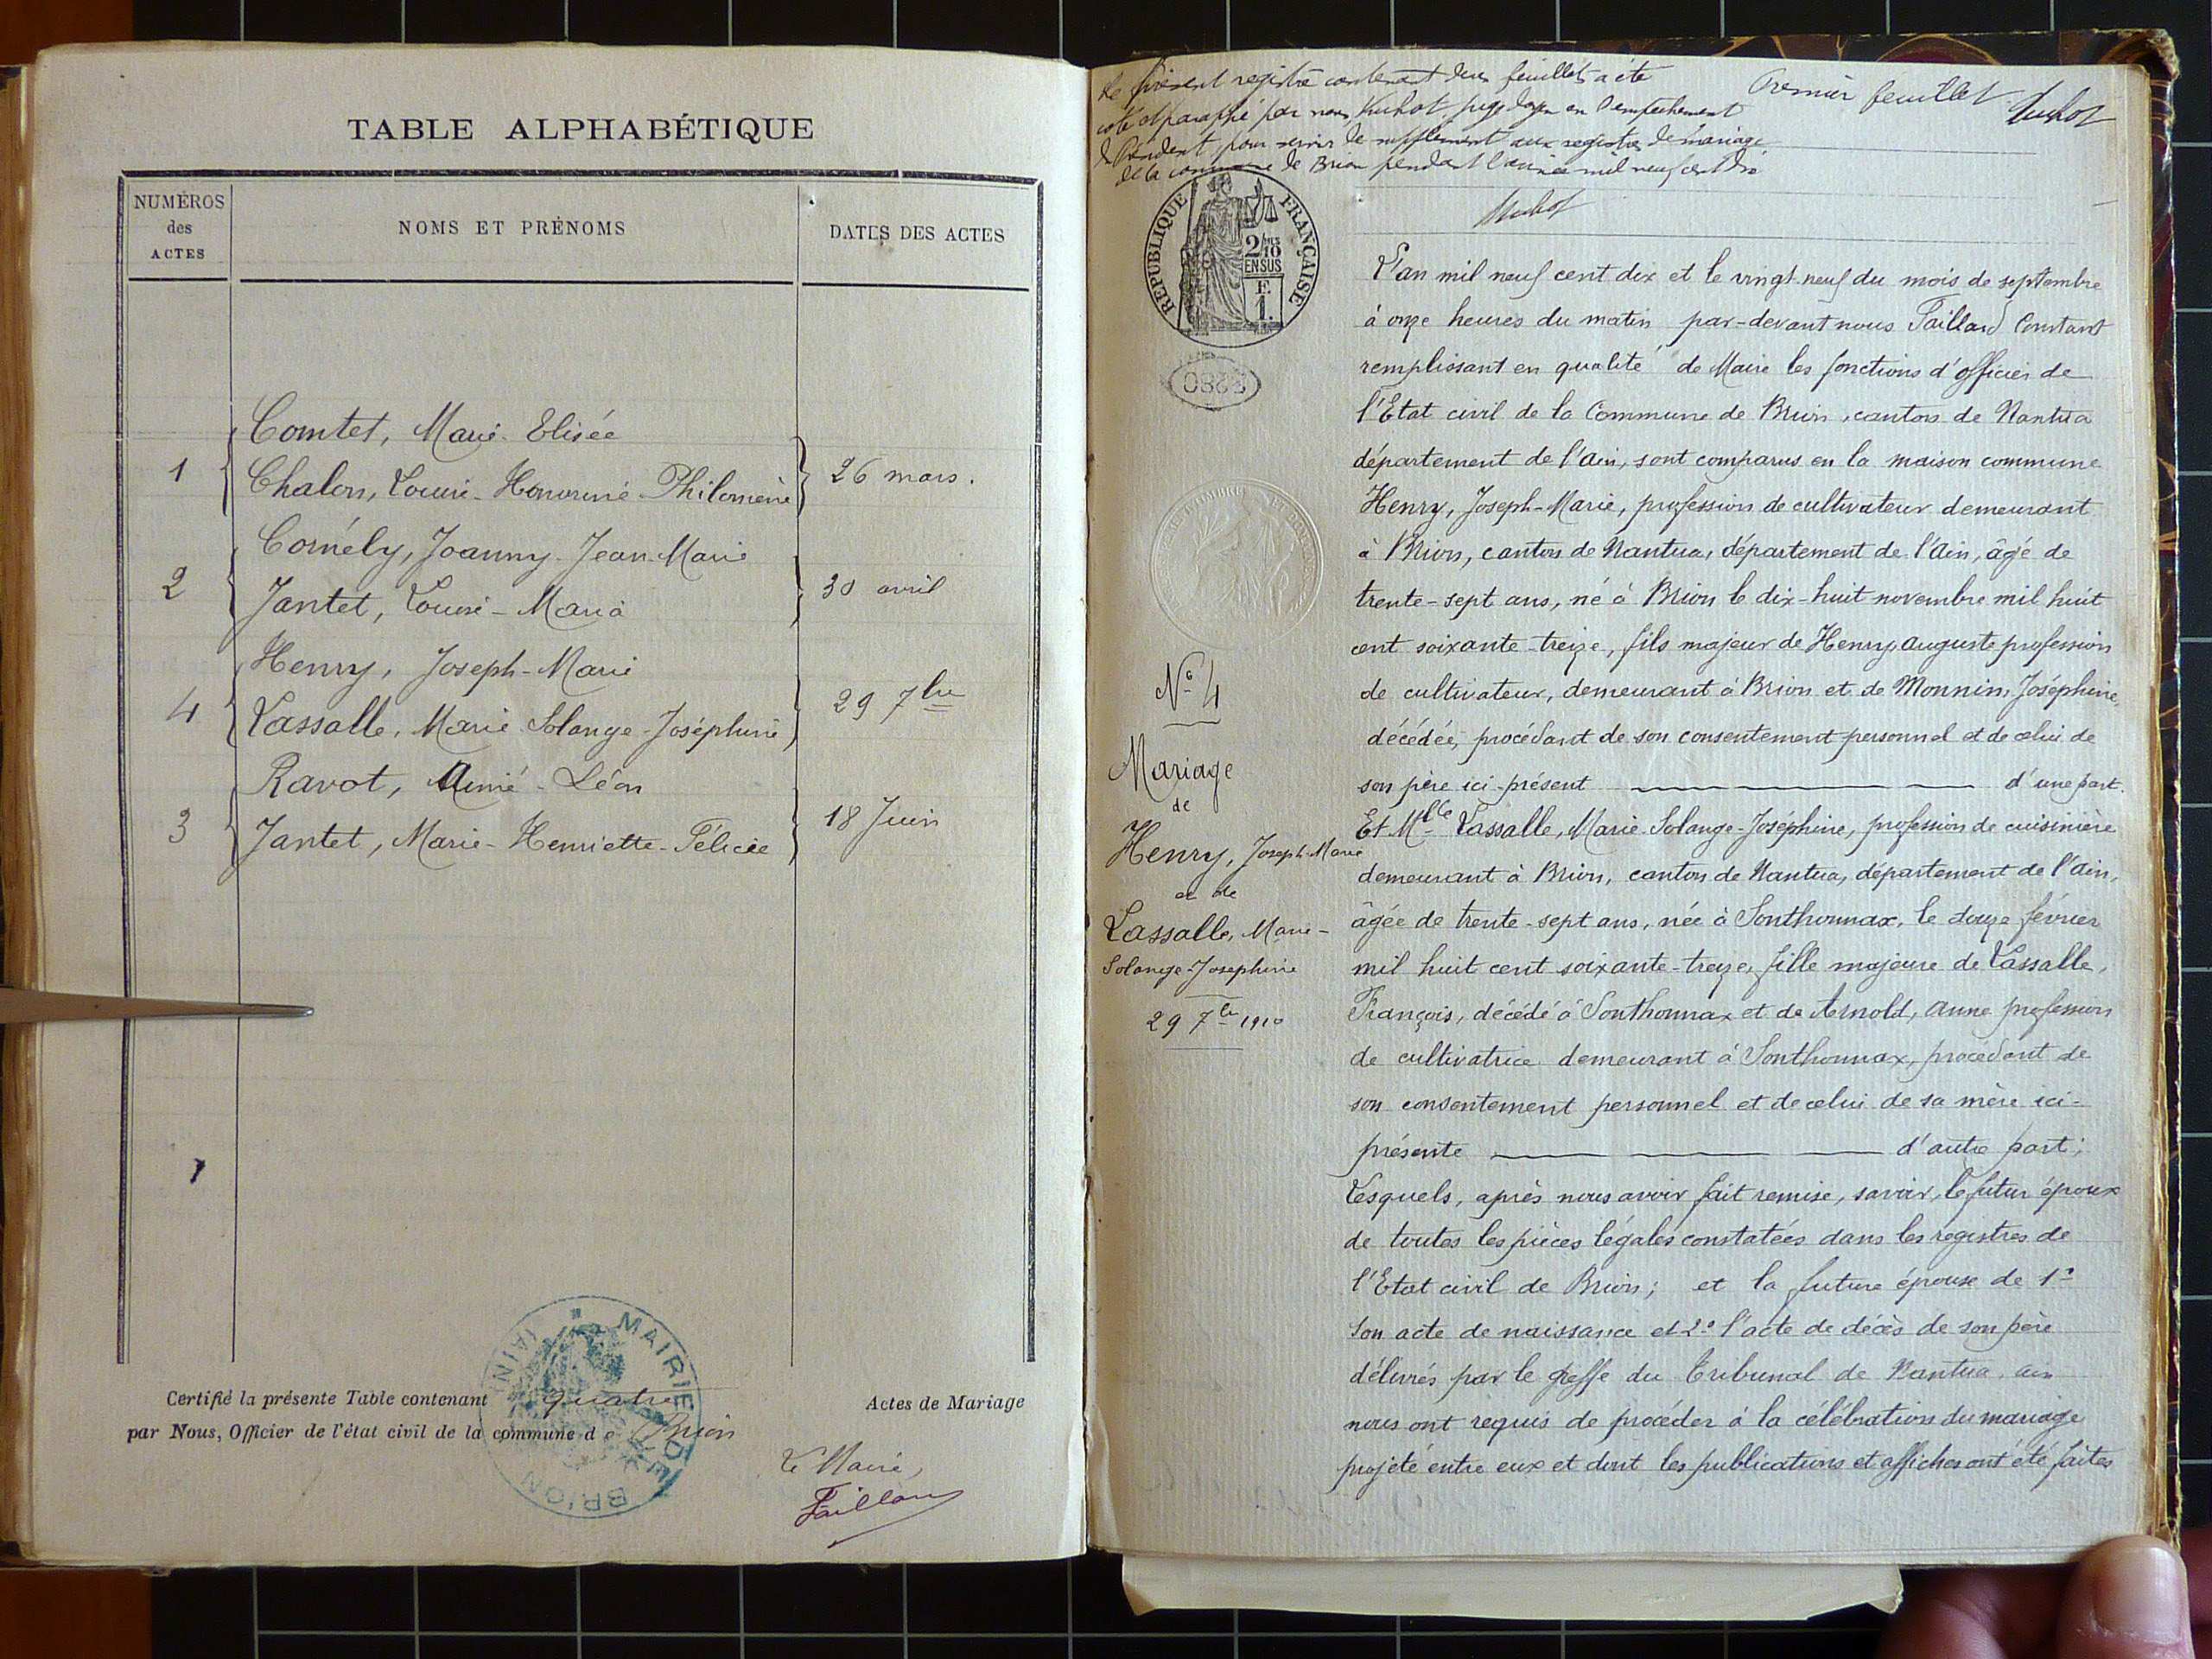 TABLE ALPHABÉTIQUE
NUMÉROS
des
ACTES
NOMS ET PRÉNOMS
DATES DES ACTES
Comtet, Marie-Elisée
1
Chalon, Louise-Honorine-Philomène
26 mars.
Cornély, Joanny-Jean-Marie
2
Jantet, Louise-Maria
30 avril
Henry, Joseph-Marie
4
Lassalle, Marie Solange-Joséphine
29 7bre
Ravot, Aimé-Léon
3
Jantet, Marie-Henriette-Félicie
18 Juin
Certifié la présente Table contenant quatre Actes de Mariage
par Nous, Officier de l'état civil de la commune de Brion
Le Maire,
Taillard
MAIRIE DE BRION (AIN)
Le présent registre contenant deux feuillets a été
coté et paraphé par nous, Juge doyen en l'empêchement
du Président pour servir de supplément aux registres de mariage
de la commune de Brion pendant l'année mil neuf cent dix
Premier feuillet
RÉPUBLIQUE FRANÇAISE
2/10 EN SUS
F. 1.
L'an mil neuf cent dix et le vingt-neuf du mois de septembre
à onze heures du matin par-devant nous Taillard Constant
remplissant en qualité de Maire les fonctions d'officier de
l'Etat civil de la Commune de Brion, canton de Nantua
département de l'Ain, sont comparus en la maison commune
Henry, Joseph-Marie, profession de cultivateur demeurant
à Brion, canton de Nantua, département de l'Ain, âgé de
trente-sept ans, né à Brion le dix-huit novembre mil huit
cent soixante-treize, fils majeur de Henry Auguste profession
de cultivateur, demeurant à Brion et de Monnin, Joséphine,
décédée, procédant de son consentement personnel et de celui de
son père ici-présent d'une part.
Et Mlle Lassalle, Marie-Solange-Joséphine, profession de cuisinière
demeurant à Brion, canton de Nantua, département de l'Ain,
âgée de trente-sept ans, née à Sonthonnax, le douze février
mil huit cent soixante-treize, fille majeure de Lassalle,
François, décédé à Sonthonnax et de Arnold, Anne profession
de cultivatrice demeurant à Sonthonnax, procédant de
son consentement personnel et de celui de sa mère ici-
présente d'autre part;
Lesquels, après nous avoir fait remise, savoir, le futur époux
de toutes les pièces légales constatées dans les registres de
l'Etat civil de Brion; et la future épouse de 1º
son acte de naissance et 2º l'acte de décès de son père
délivrés par le greffe du Tribunal de Nantua, Ain
nous ont requis de procéder à la célébration du mariage
projeté entre eux et dont les publications et affiches ont été faites
Nº 4
Mariage
de
Henry, Joseph-Marie
et de
Lassalle, Marie-
Solange-Joséphine
29 7bre 1910